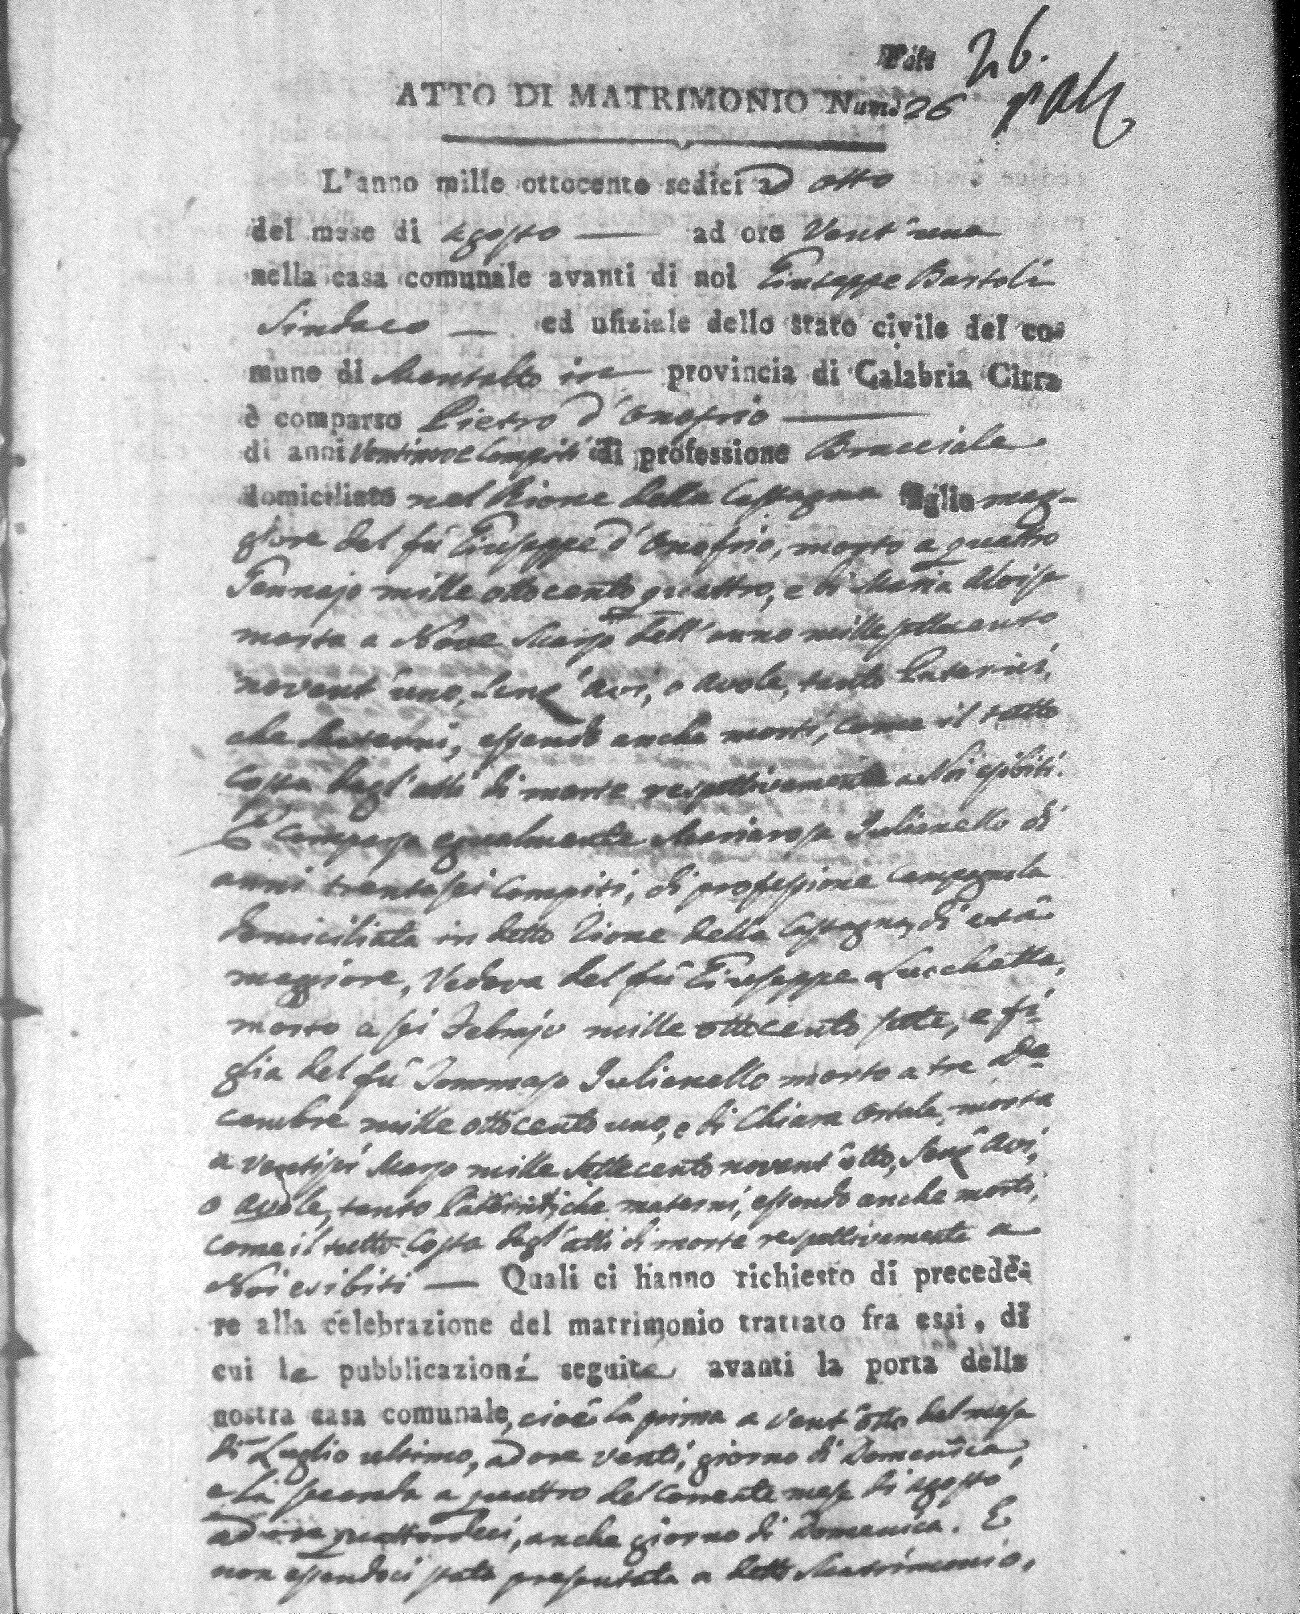 26.
ATTO DI MATRIMONIO Num. 26
L'anno mille ottocento sedici ad otto
del mese di agosto — ad ore Vent'una
nella casa comunale avanti di noi Giuseppe Bartoli
Sindaco — ed ufiziale dello stato civile del co-
mune di Montalto in provincia di Calabria Citra
è comparso Pietro d'Onofrio —
di anni Ventinove Compiti di professione Bracciale
domiciliato nel Rione della Castagna figlio mag-
giore del fù Giuseppe d'Onofrio, morto a quattro
Gennajo mille ottocento quattro, e di Maria Aloise
morta a Nove Marzo dell'anno mille settecento
novent'uno, senz'avi, o avole, tanto Paterni,
che Materni, essendo anche morti, come il tutto
Costa dagl'atti di morte respettivamente a Noi esibiti.
E' Comparsa egualmente Mariarosa Iulianello di
anni trentasei Compiti, di professione Campagnola
domiciliata in detto Rione della Castagna, di età
maggiore, Vedova del fù Giuseppe Lucchetta,
morto a sei Febrajo mille ottocento sette, e fi-
glia del fù Tommaso Iulianello morto a tre De-
cembre mille ottocento uno, e di Chiara morta
a Ventisei Marzo mille settecento novent'otto, senz'avi,
o avole, tanto Paterni, che materni, essendo anche morti,
come il tutto Costa dagl'atti di morte respettivamente a
Noi esibiti — Quali ci hanno richiesto di precede-
re alla celebrazione del matrimonio trattato fra essi, di
cui le pubblicazioni seguite avanti la porta della
nostra casa comunale, cioè la prima a vent'otto del mese
di Luglio ultimo, ad ore venti, giorno di Domenica,
e la seconda a quattro del corrente mese di agosto
ad ore quattordeci, anche giorno di Domenica. E
non essendoci stata presentata a detto Matrimonio,